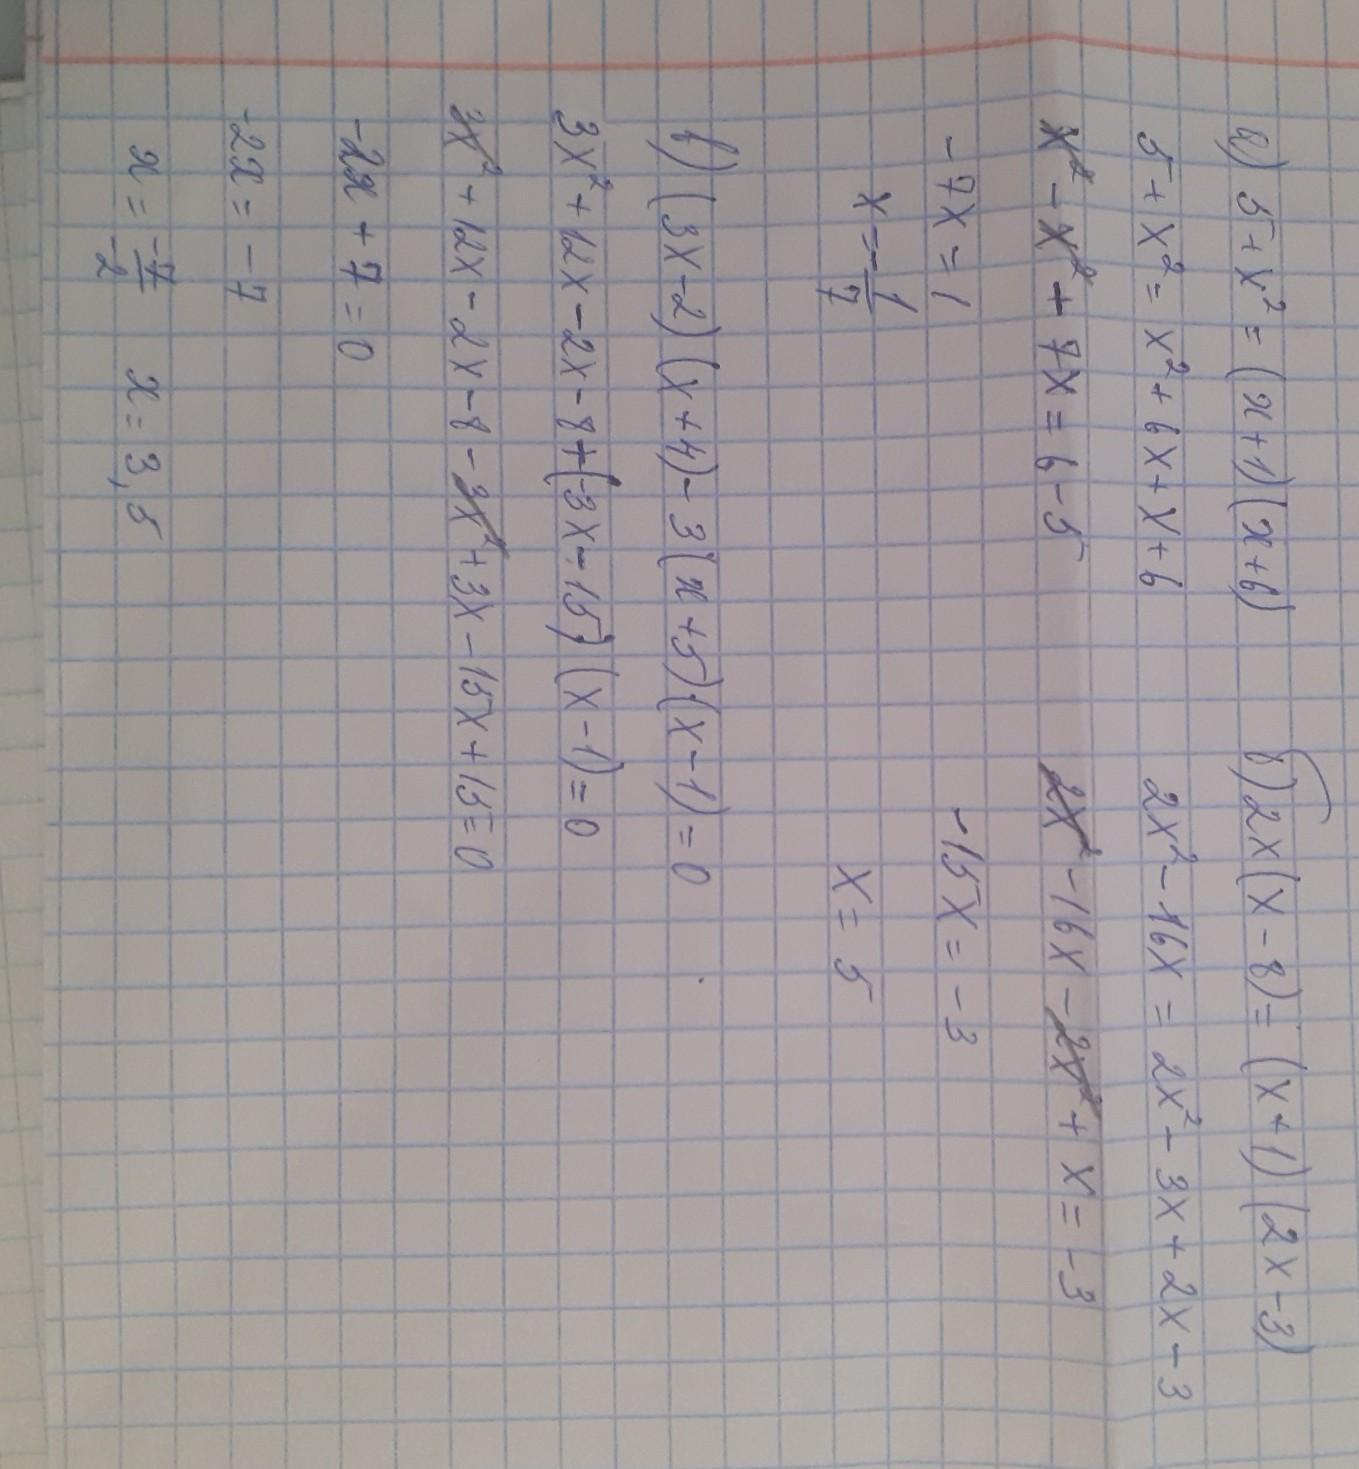 а) 5 + x² = (x+1)(x+6)
5 + x² = x² + 6x + x + 6
x² - x² + 7x = 6 - 5
- 7x = 1
x = - 1/7
б) 2x(x - 8) = (x + 1)(2x - 3)
2x² - 16x = 2x² - 3x + 2x - 3
2x² - 16x - 2x² + x = -3
-15x = -3
x = 5
в) (3x-2)(x+4) - 3(x+5)(x-1) = 0
3x² + 12x - 2x - 8 + (-3x - 15)(x-1) = 0
3x² + 12x - 2x - 8 - 3x² + 3x - 15x + 15 = 0
-2x + 7 = 0
-2x = -7
x = -7/-2 x = 3,5